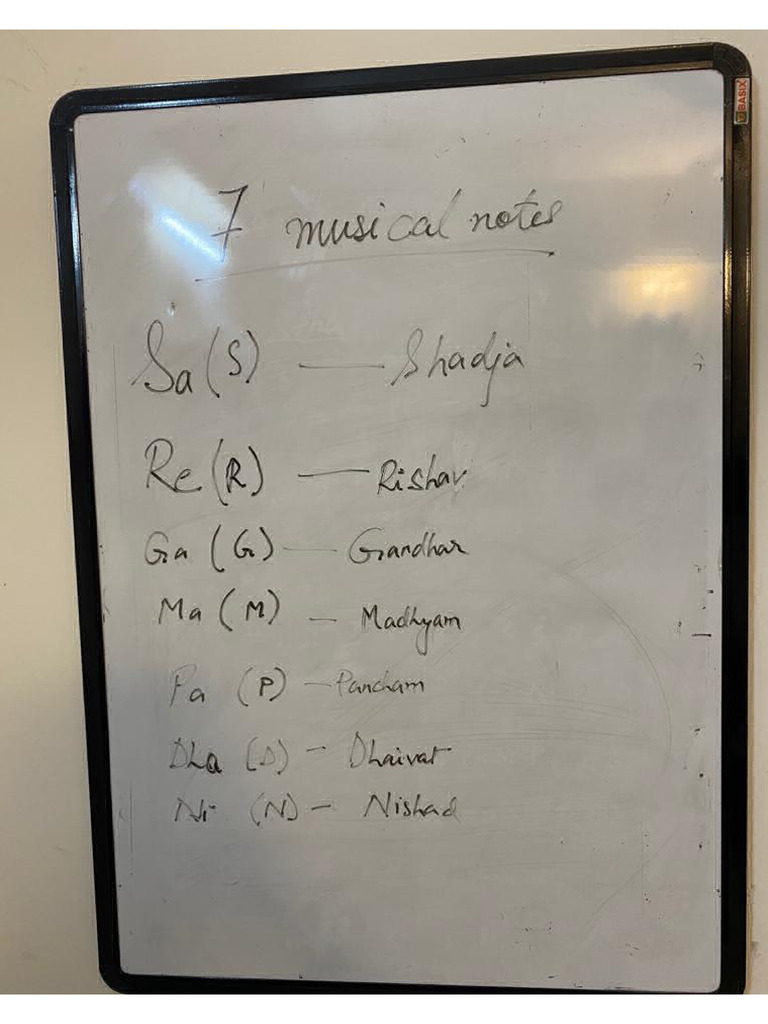 7 musical notes
Sa (S) — Shadja
Re (R) — Rishav
Ga (G) — Gandhar
Ma (M) — Madhyam
Pa (P) — Pancham
Dha (D) — Dhaivat
Ni (N) — Nishad
BASIX